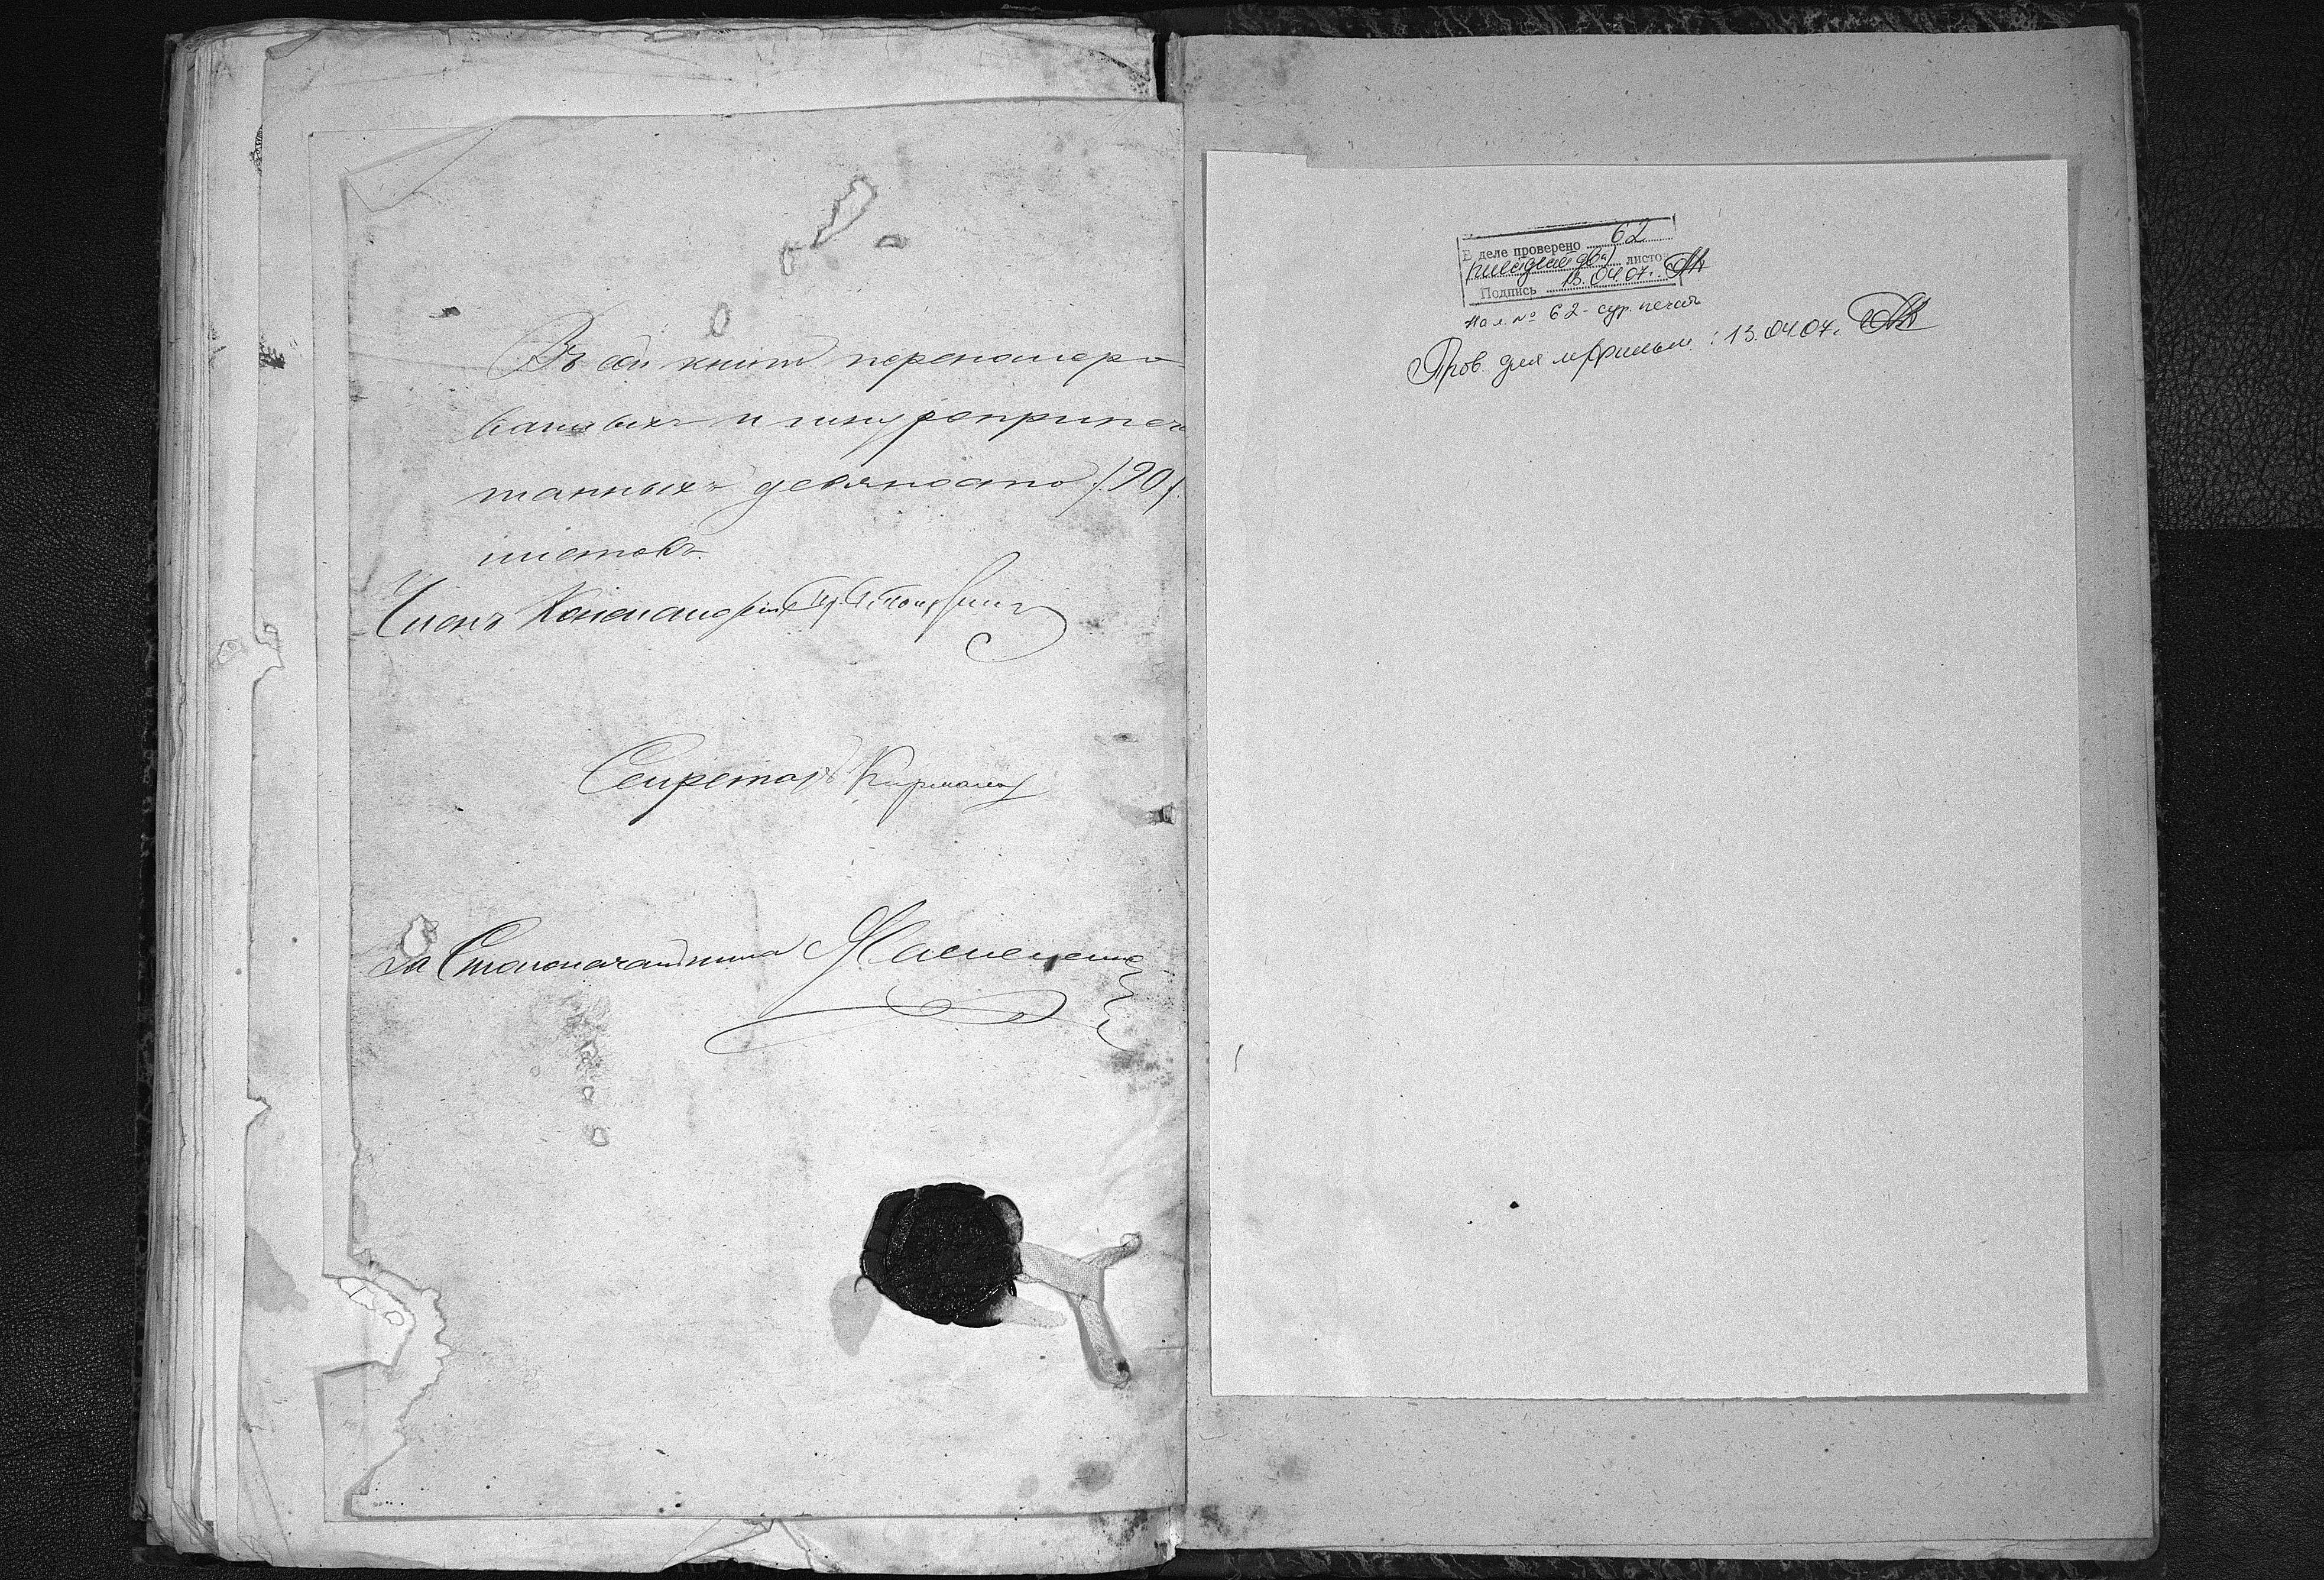 Въ сей книгѣ перенумеро-
ванныхъ и шнуроприпеча-
танныхъ девяносто /90/.
листовъ.
Членъ Консисторіи
Секретарь
За Столоначальника
В деле проверено 62
(шестьдесят два) листов
Подпись 13.04.07г.
На л. № 62 - сург. печать
Пров. для м/фильм.: 13.04.07г.